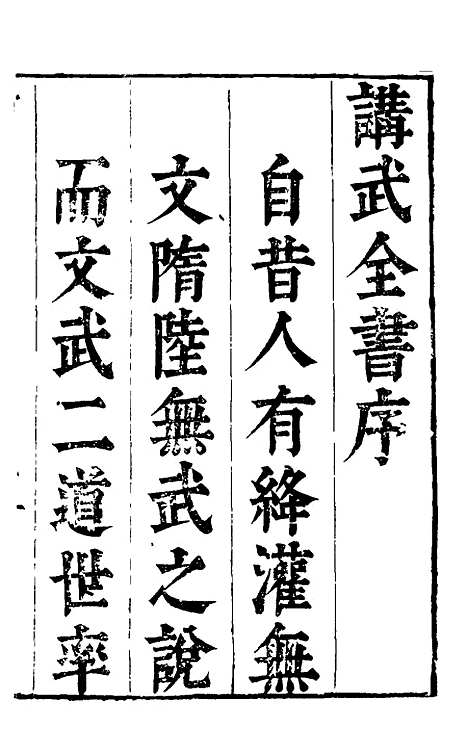 講武全書序
自昔人有絳灌無
文隋陸無武之說
而文武二道世率